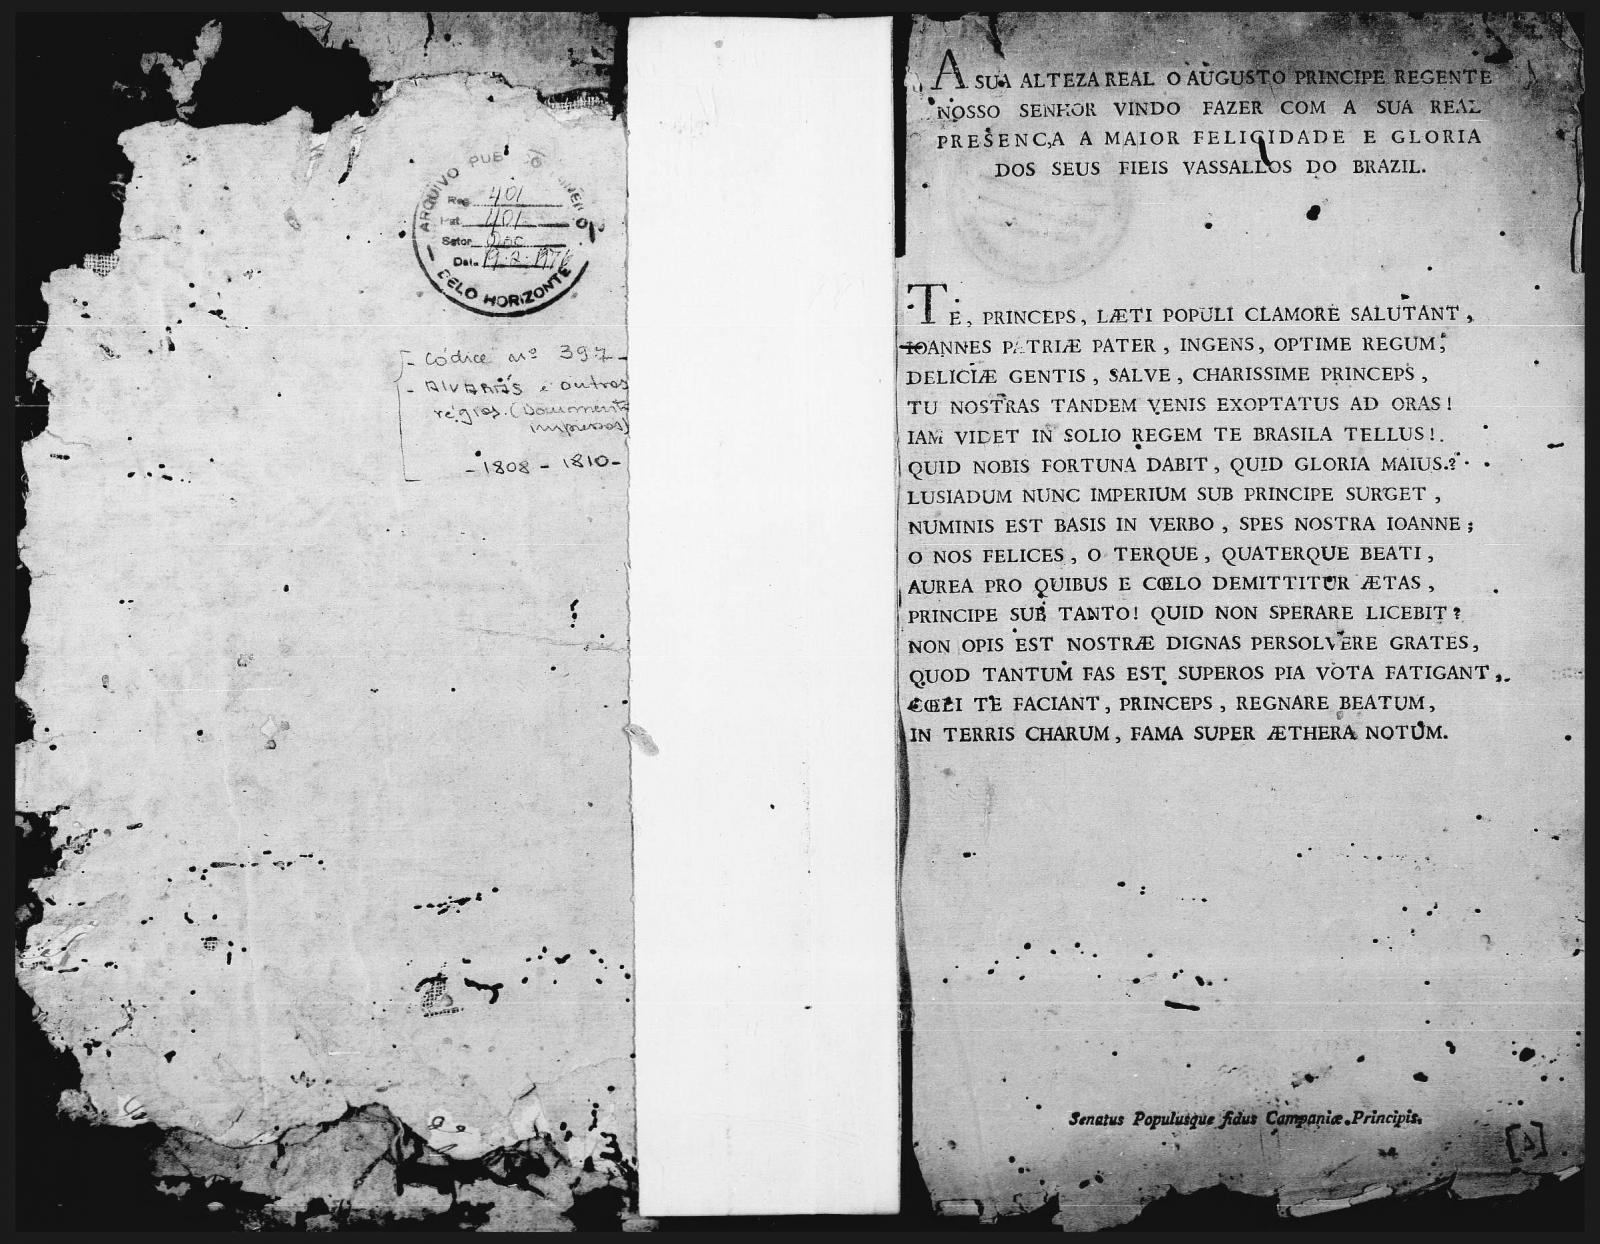 ARQUIVO PUBLICO MINEIRO
Reg. 401
Est. 401
Setor Doc
Data 19.2.1976
BELO HORIZONTE
- Códice nº 397 -
- Alvarás e outros
régios. (Documentos
impressos)
- 1808 - 1810 -
A SUA ALTEZA REAL O AUGUSTO PRINCIPE REGENTE
NOSSO SENHOR VINDO FAZER COM A SUA REAL
PRESENC,A A MAIOR FELICIDADE E GLORIA
DOS SEUS FIEIS VASSALLOS DO BRAZIL.
TE, PRINCEPS, LÆTI POPULI CLAMORE SALUTANT,
IOANNES PATRIÆ PATER, INGENS, OPTIME REGUM,
DELICIÆ GENTIS, SALVE, CHARISSIME PRINCEPS,
TU NOSTRAS TANDEM VENIS EXOPTATUS AD ORAS!
IAM VIDET IN SOLIO REGEM TE BRASILA TELLUS!
QUID NOBIS FORTUNA DABIT, QUID GLORIA MAIUS?
LUSIADUM NUNC IMPERIUM SUB PRINCIPE SURGET,
NUMINIS EST BASIS IN VERBO, SPES NOSTRA IOANNE;
O NOS FELICES, O TERQUE, QUATERQUE BEATI,
AUREA PRO QUIBUS E CŒLO DEMITTITUR ÆTAS,
PRINCIPE SUB TANTO! QUID NON SPERARE LICEBIT?
NON OPIS EST NOSTRÆ DIGNAS PERSOLVERE GRATES,
QUOD TANTUM FAS EST SUPEROS PIA VOTA FATIGANT,
CŒLI TE FACIANT, PRINCEPS, REGNARE BEATUM,
IN TERRIS CHARUM, FAMA SUPER ÆTHERA NOTUM.
Senatus Populusque fidus Campaniæ Principis.